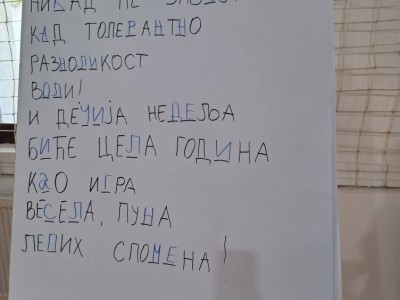 КАД ТОЛЕРАНТНО
РАЗНОЛИКОСТ
ВОДИ!
И ДЕЧИЈА НЕДЕЉА
БИЋЕ ЦЕЛА ГОДИНА
КАО ИГРА
ВЕСЕЛА, ПУНА
ЛЕПИХ СПОМЕНА!